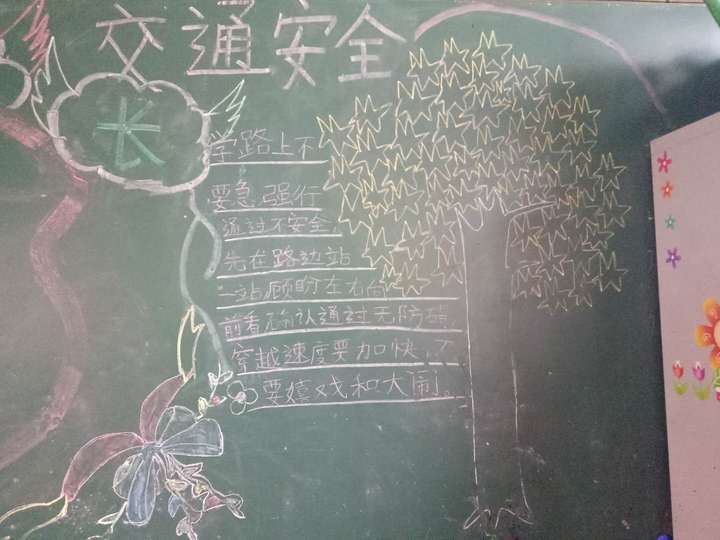 交通安全
长
学路上不
要急.强行
通过不安全,
先在路边站
一站顾盼左右向
前看确认通过无防碍,
穿越速度要加快,不
要嬉戏和大闹。